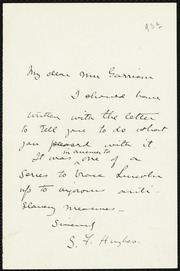 My dear Mrs Garrison
I should have
written with the letter
to tell you to do what
you pleased with it.
It was one of a
series to brace Lincoln
up to anti-
slavery measures —
Sincerely
S. F. Hughes